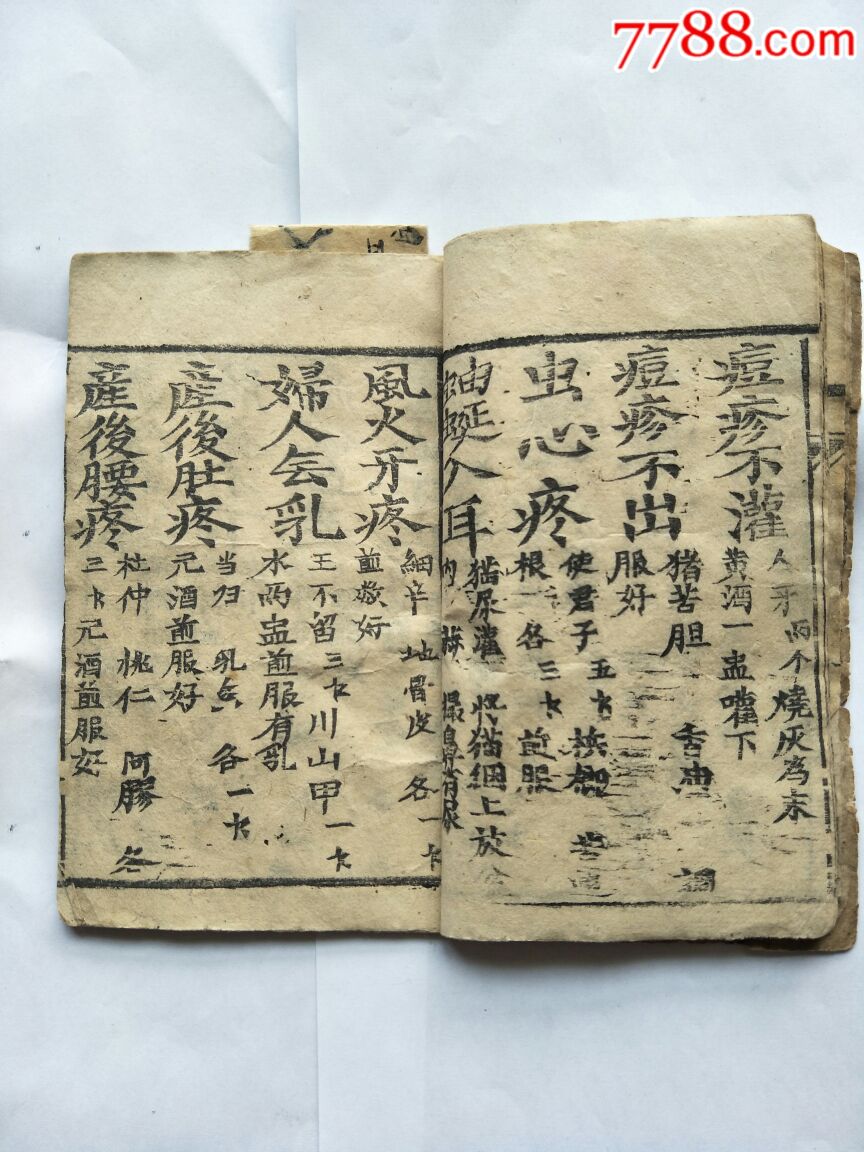 7788.com
痘疹不灌
人牙兩个燒灰為末
黄酒一盅嚾下
痘疹不出
猪苦胆 香虫 調
服好
虫心疼
使君子五𠂈 槟榔 苦
根一各三𠂈煎服
蚰蜒入耳
猫尿灌 将猫綑上放
内
風火牙疼
細辛 地骨皮 各一𠂈
煎漱好
婦人無乳
王不留三𠂈川山甲一𠂈
水兩盅煎服有乳
産後肚疼
当归 乳香 各一𠂈
元酒煎服好
産後腰疼
杜仲 桃仁 阿膠 各
三𠂈元酒煎服好